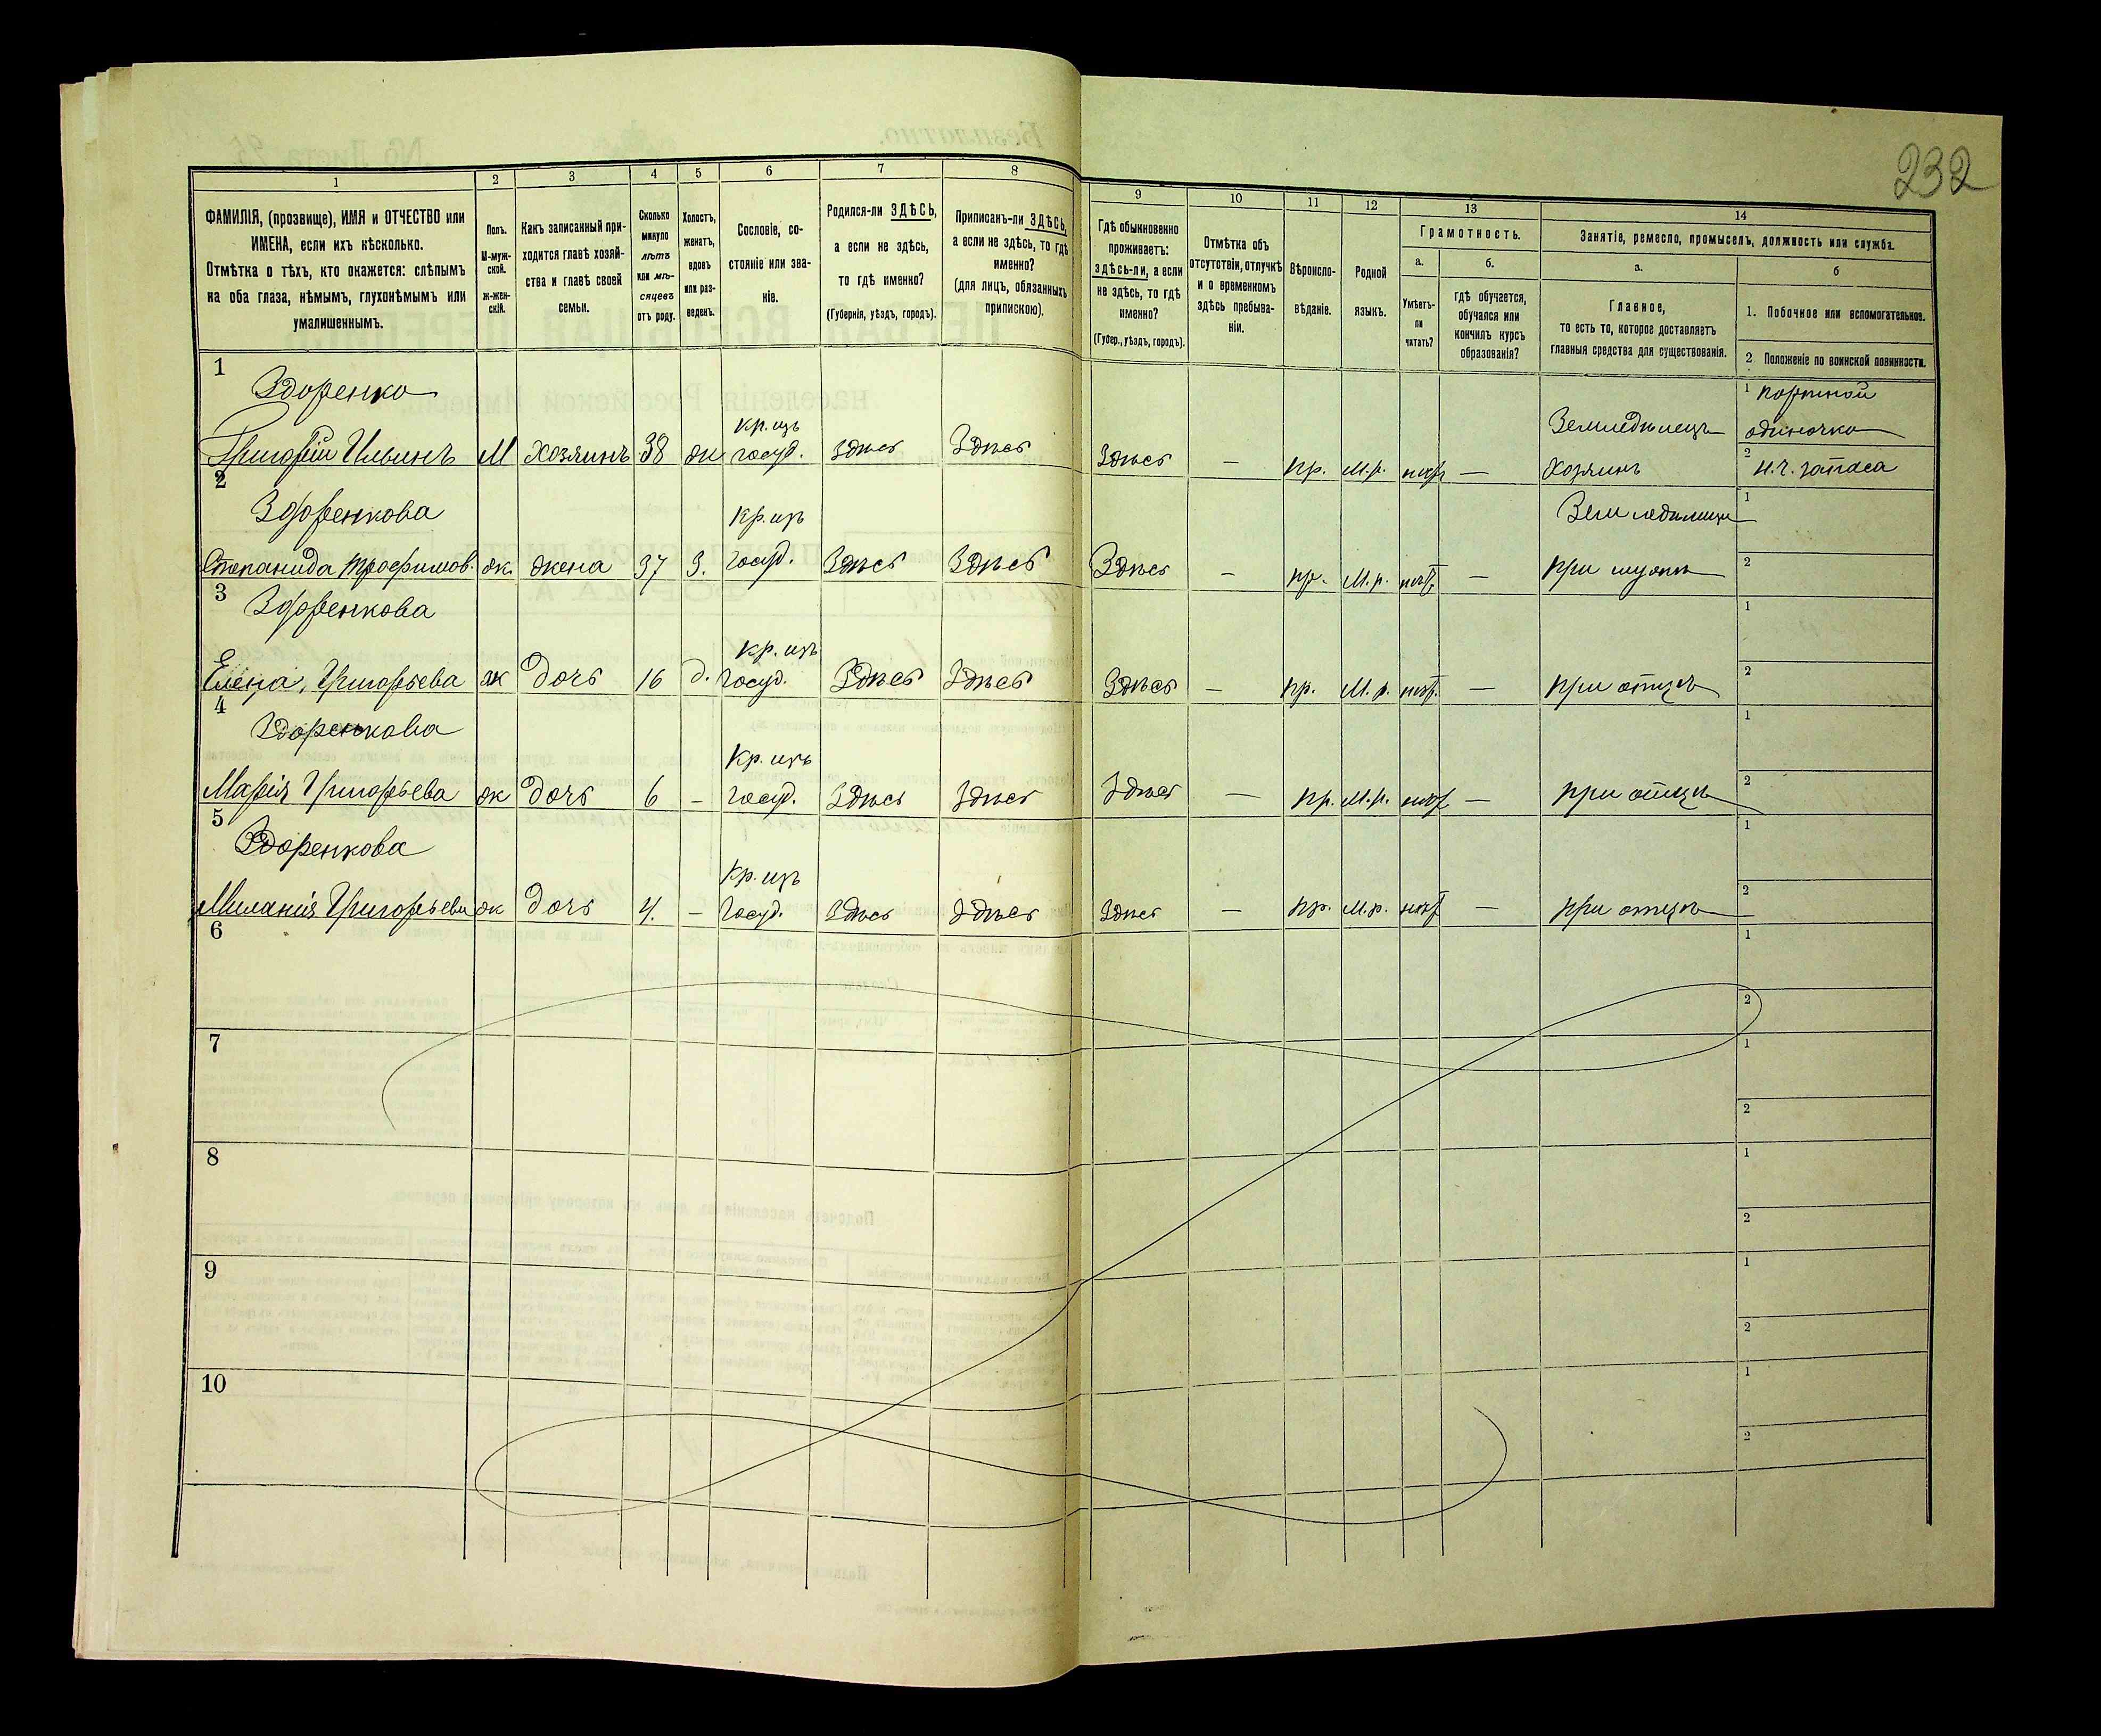 232
1 2 3 4 5 6 7 8 9 10 11 12 13 14
ФАМИЛІЯ, (прозвище), ИМЯ и ОТЧЕСТВО или
ИМЕНА, если ихъ нѣсколько.
Отмѣтка о тѣхъ, кто окажется: слѣпымъ
на оба глаза, нѣмымъ, глухонѣмымъ или
умалишеннымъ.
Полъ.
М-муж-
ской.
Ж-жен-
скій.
Какъ записанный при-
ходится главѣ хозяй-
ства и главѣ своей
семьи.
Сколько
минуло
лѣтъ
или мѣ-
сяцевъ
отъ роду.
Холостъ,
женатъ,
вдовъ
или раз-
веденъ.
Сословіе, со-
стояніе или зва-
ніе.
Родился-ли ЗДѢСЬ,
а если не здѣсь,
то гдѣ именно?
(Губернія, уѣздъ, городъ).
Приписанъ-ли ЗДѢСЬ,
а если не здѣсь, то гдѣ
именно?
(для лицъ, обязанныхъ
припискою).
Гдѣ обыкновенно
проживаетъ:
здѣсь-ли, а если
не здѣсь, то гдѣ
именно?
(Губер., уѣздъ, городъ).
Отмѣтка объ
отсутствіи, отлучкѣ
и о временномъ
здѣсь пребыва-
ніи.
Вѣроиспо-
вѣданіе.
Родной
языкъ.
Грамотность.
а.
Умѣетъ-
ли
читать?
б.
гдѣ обучается,
обучался или
кончилъ курсъ
образованія?
Занятіе, ремесло, промыселъ, должность или служба.
а.
Главное,
то есть то, которое доставляетъ
главныя средства для существованія.
б
1. Побочное или вспомогательное.
2 Положеніе по воинской повинности.
1
Здоренко
Григорій Ильинъ М хозяинъ 38 ж кр. изъ госуд. здѣсь Здѣсь Здѣсь — пр. М.р. негр —
Земледѣлецъ
Хозяинъ
1 портной
одиночка
2 н.ч. запаса
2
Здоренкова
Степанида Трофимов. ж. жена 37 З. Кр. изъ госуд. Здѣсь Здѣсь Здѣсь — пр. М.р. негр —
при мужѣ
1
2
3
Здоренкова
Елена Григорьева ж Дочь 16 д. Кр. изъ госуд. Здѣсь Здѣсь Здѣсь — пр. М.р. негр. — при отцѣ
1
2
4
Здоренкова
Марія Григорьева ж Дочь 6 — Кр. изъ госуд. Здѣсь Здѣсь Здѣсь — пр. М.р. негр — при отцѣ
1
2
5
Здоренкова
Миланія Григорьева ж Дочь 4. — Кр. изъ госуд. Здѣсь Здѣсь Здѣсь — пр. М.р. негр — при отцѣ
1
2
6
1
2
7
1
2
8
1
2
9
1
2
10
1
2